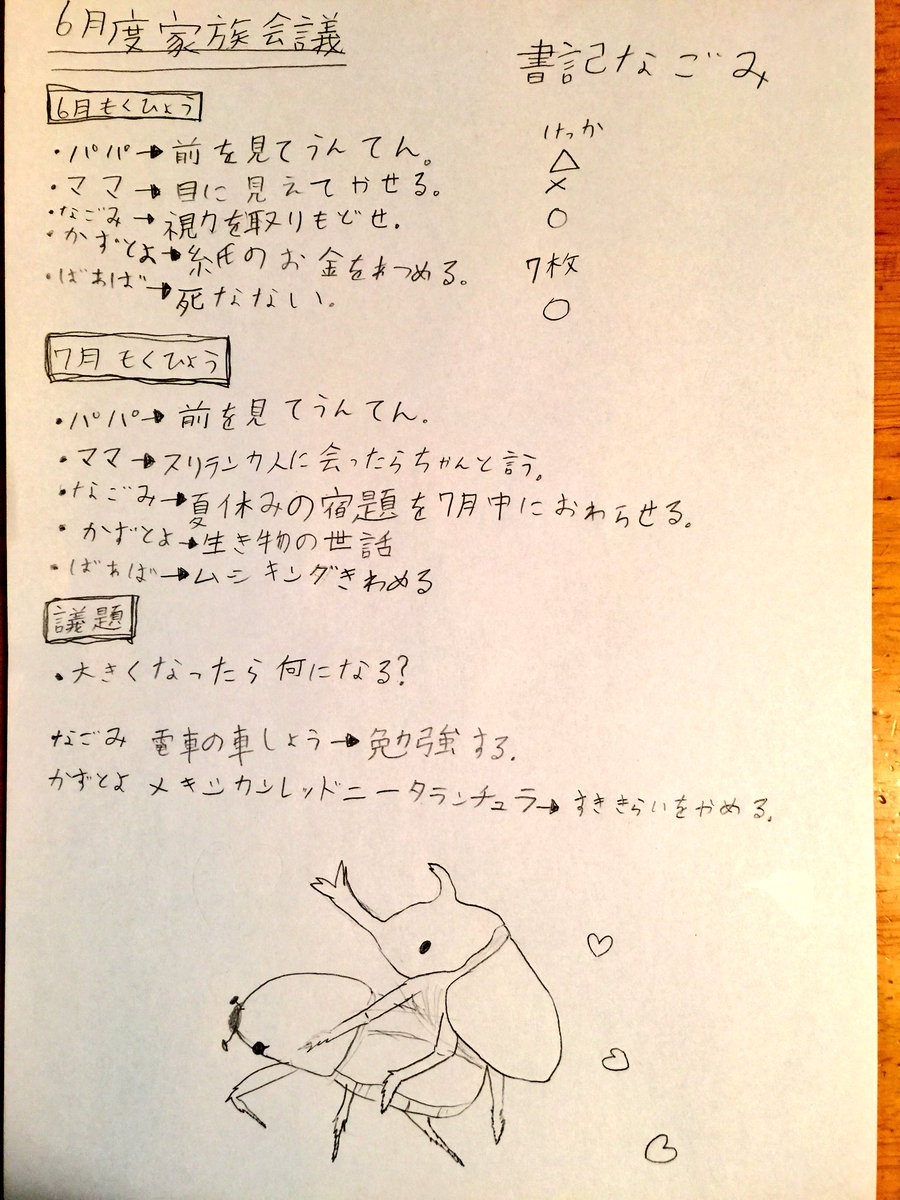 6月度家族会議
書記なごみ
6月もくひょう
けっか
・パパ→前を見てうんてん。 △
・ママ→目に見えてやせる。 ×
・なごみ→視力を取りもどせ. ○
・かずとよ→紙のお金をあつめる。 7枚
・ばあば→死なない。 ○
7月もくひょう
・パパ→前を見てうんてん.
・ママ→スリランカ人に会ったらちゃんと言う。
・なごみ→夏休みの宿題を7月中におわらせる.
・かずとよ→生き物の世話
・ばあば→ムシキングきわめる
議題
・大きくなったら何になる?
なごみ 電車の車しょう→勉強する.
かずとよ メキシカンレッドニータランチュラ→すききらいをやめる.